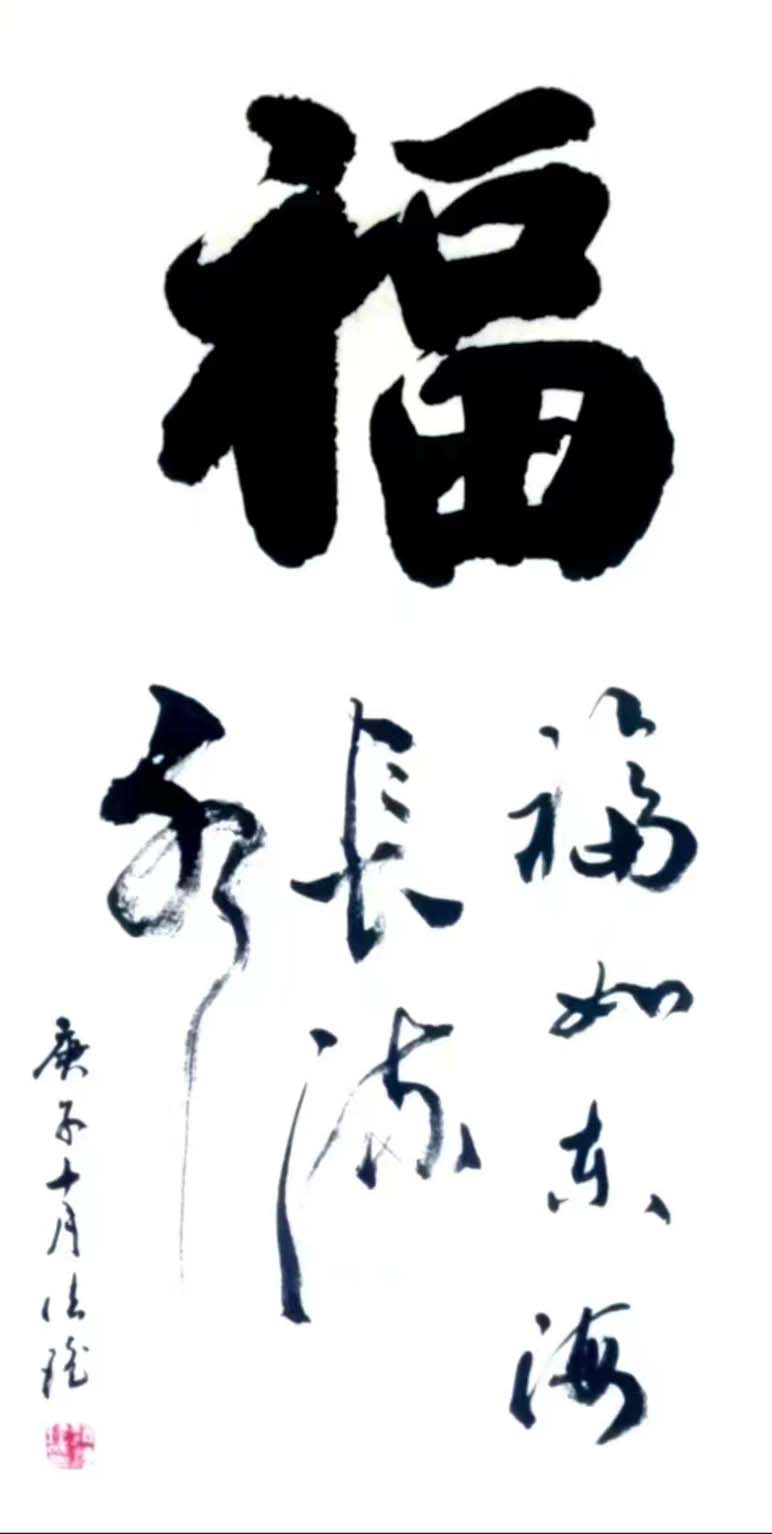 福
福如东海
長流
水
庚子十月